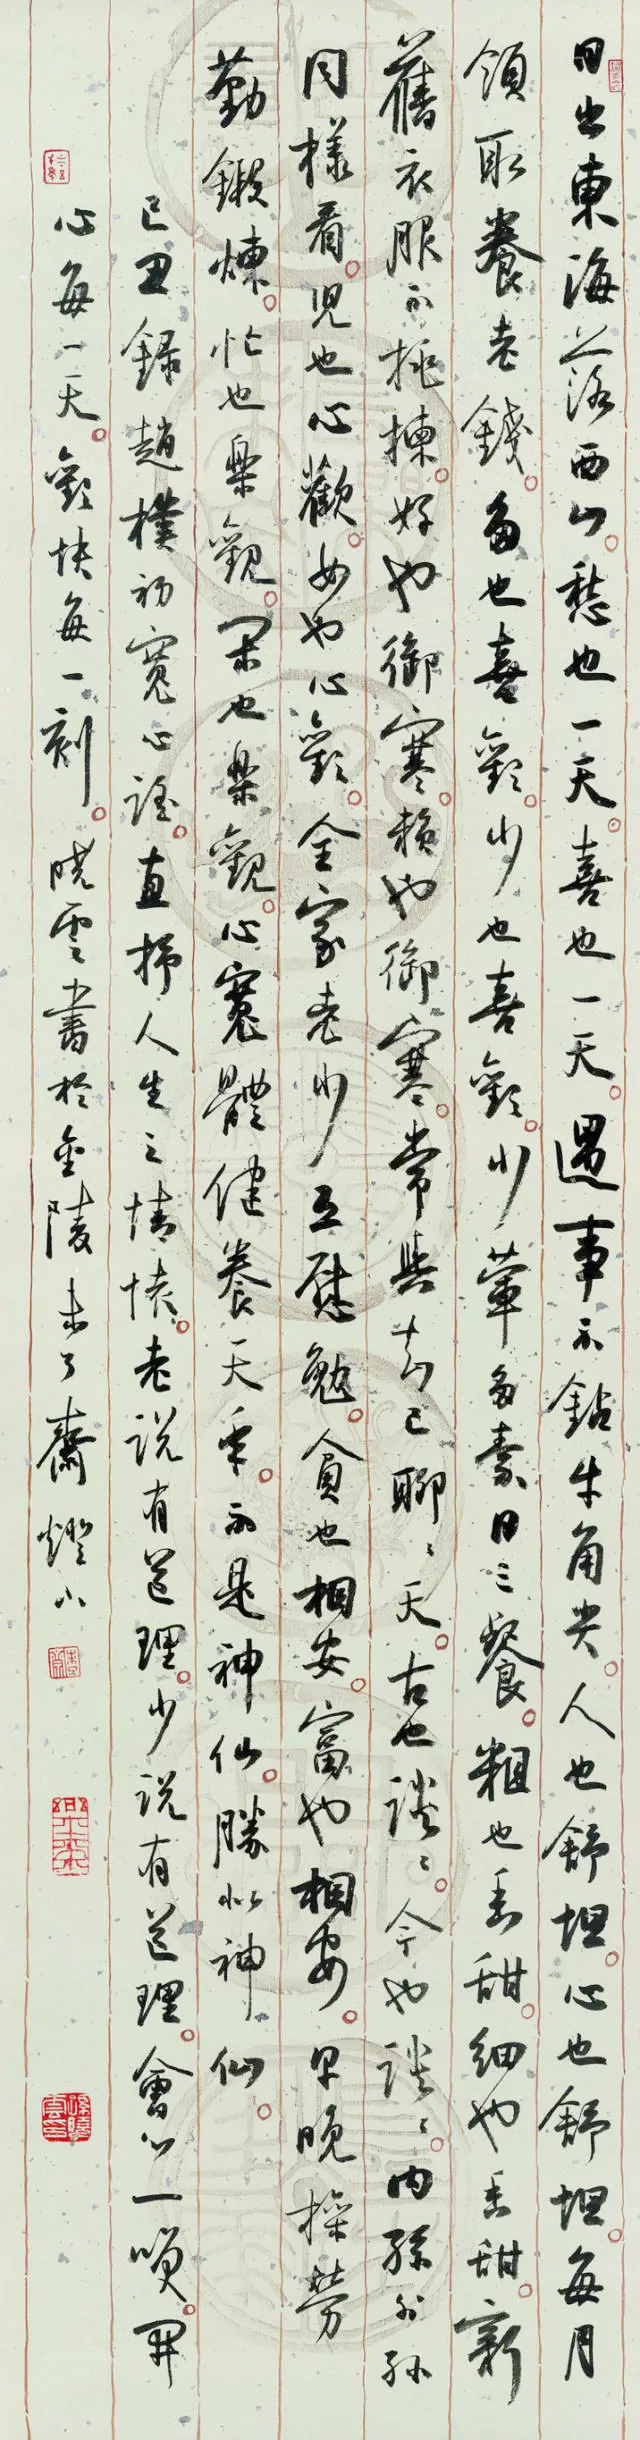 日出東海落西山愁也一天喜也一天遇事不鉆牛角尖人也舒坦心也舒坦每月
領取養老錢多也喜歡少也喜歡少葷多素日三餐粗也香甜細也香甜新
舊衣服不挑揀好也御寒賴也御寒常與知己聊聊天古也談談今也談談内孫外孫
同樣看兒也心歡女也心歡全家老少互慰勉貧也相安富也相安早晚操勞
勤鍛煉忙也樂觀閑也樂觀心寬體健養天年不是神仙勝似神仙
己丑録趙樸初寬心謠直抒人生之情懷老説有道理少説有道理會心一笑開
心每一天歡快每一刻曉雲書於金陵未了齋燈下